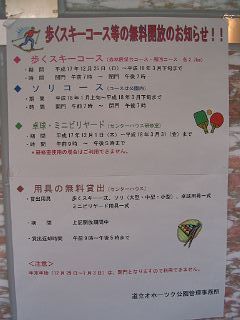 歩くスキーコース等の無料開放のお知らせ!!
◆ 歩くスキーコース
・期間 平成17年12月25日(日)~平成18年3月下旬まで
・時間 開門 午前7時 ~ 閉門 午後7時
◆ ソリコース
・期間 平成18年1月上旬~平成18年3月下旬まで
・時間 開門 午前7時 ~ 閉門 午後7時
◆ 卓球・ミニビリヤード (センターハウス研修室)
・期間 平成17年12月1日(木)~平成18年3月31日(金)まで
・時間 午前9時 ~ 午後5時まで
*研修室使用の場合はご利用できません。
◆ 用具の無料貸出 (センターハウス)
・貸出用具 歩くスキー一式、ソリ(大型・中型・小型)、卓球用具一式
ミニビリヤード用具一式
・期間 上記開放期間中
・貸出返却時間 午前9時~午後5時まで
<注意>
年末年始(12月29日~1月3日)は、閉門となりますので利用できません。
道立オホーツク公園管理事務所